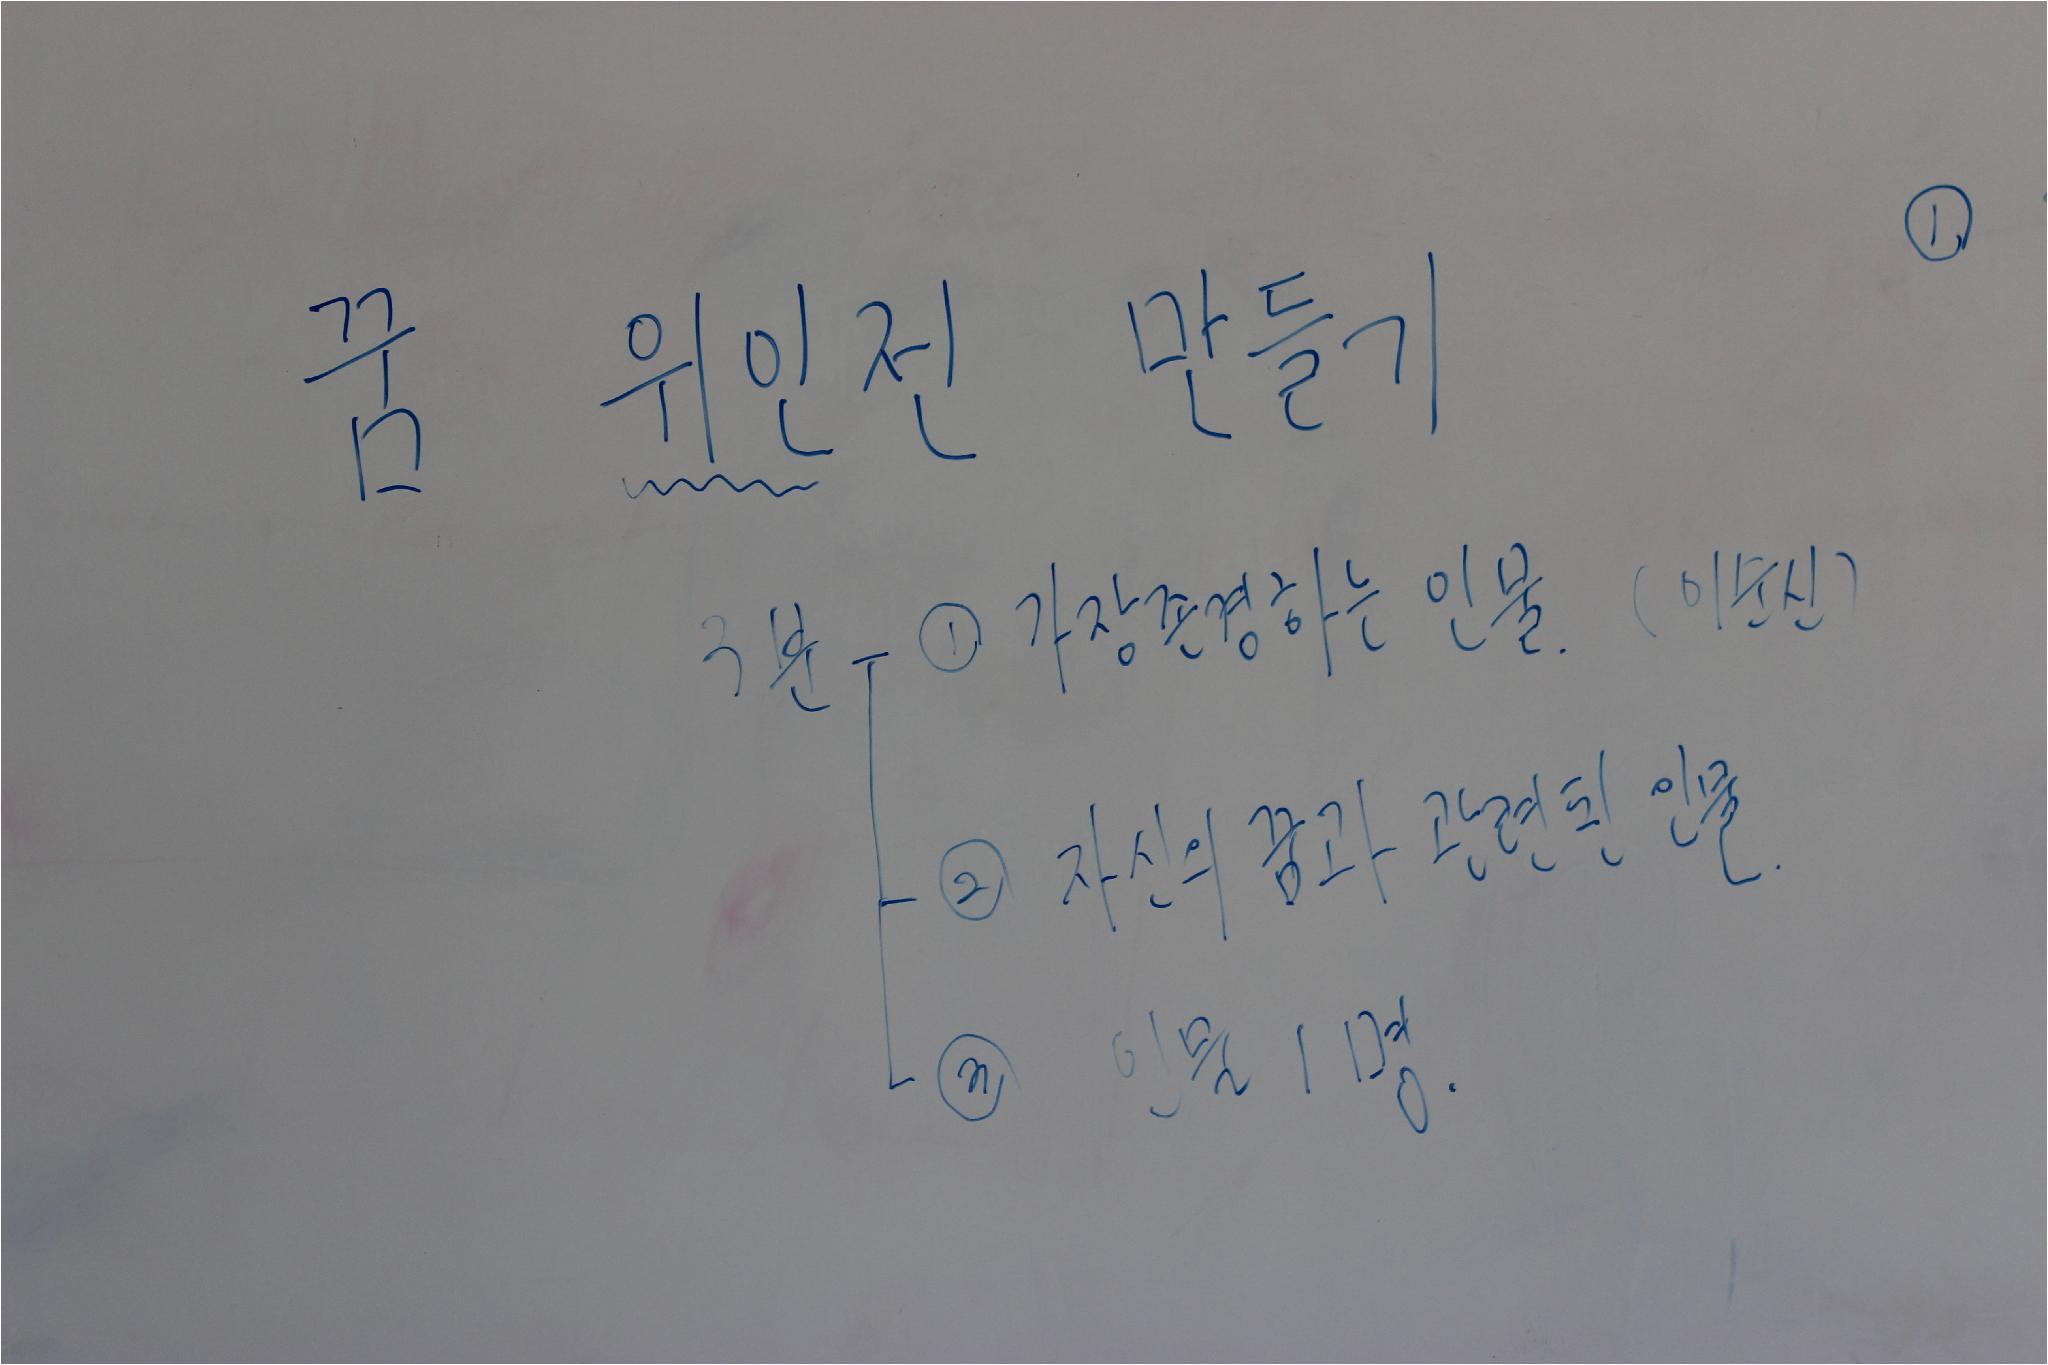 ①
꿈 위인전 만들기
3분 ① 가장존경하는 인물. (이순신)
② 자신의 꿈과 관련된 인물.
③ 인물 1명.